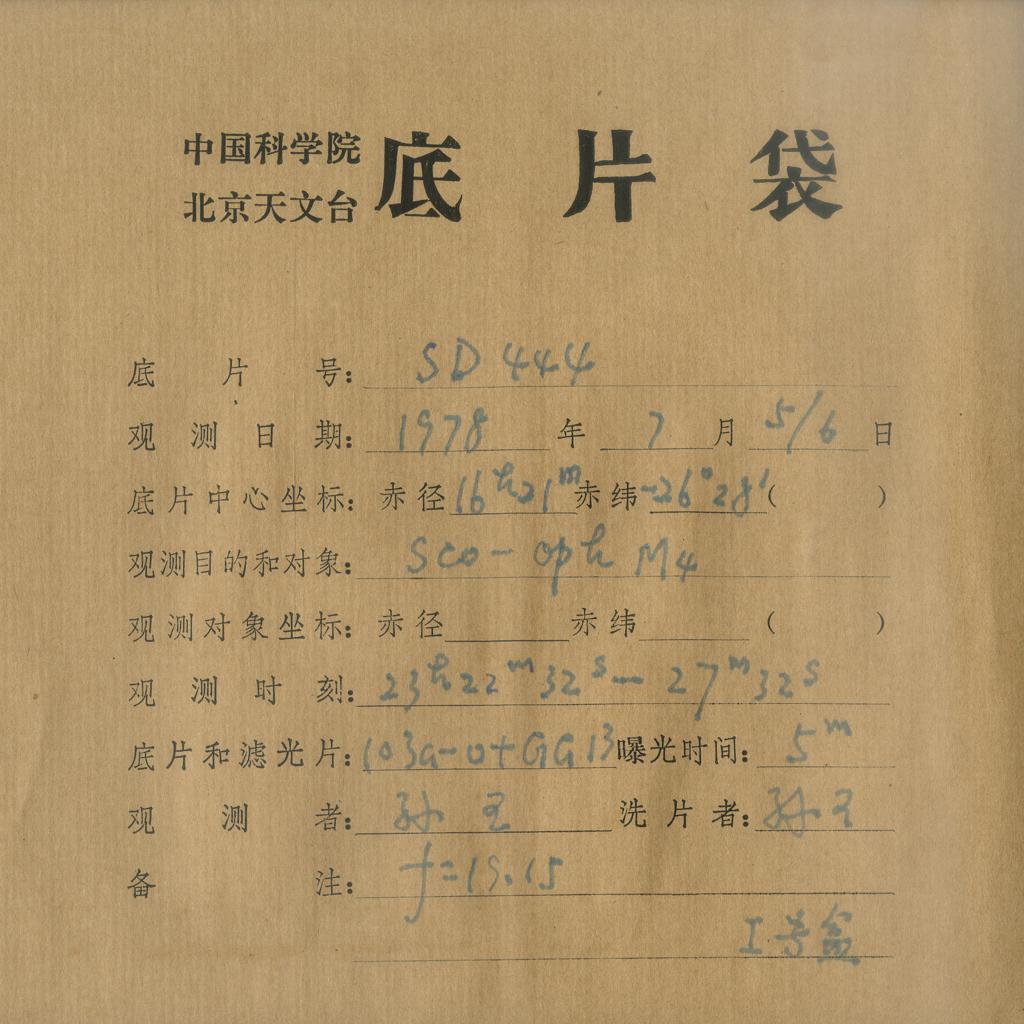 中国科学院
北京天文台
底片袋
底片号: SD 444
观测日期: 1978 年 7 月 5/6 日
底片中心坐标: 赤径 16h21m 赤纬 -26°28′ ( )
观测目的和对象: Sco-oph M4
观测对象坐标: 赤径 赤纬 ( )
观测时刻: 23h22m32s — 27m32s
底片和滤光片: 103a-O+GG13 曝光时间: 5m
观测者: 孙 王 洗片者: 孙 王
备注: f=19.15
I号盒